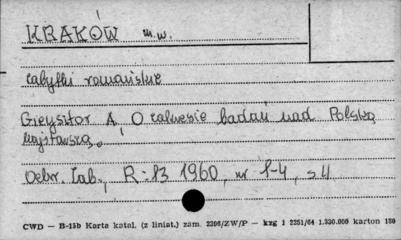 KRAKÓW m.w.
zabytki romańskie
Gieysztor A. O zakresie badań nad Polską
najstarszą.
Ochr. Zab., R: 13 1960, nr 1-4, s 4
CWD — B-15b Karta katal. (z liniat.) zam. 2206/ZW/P — kzg 1 2251/64 1.330.000 karton 180